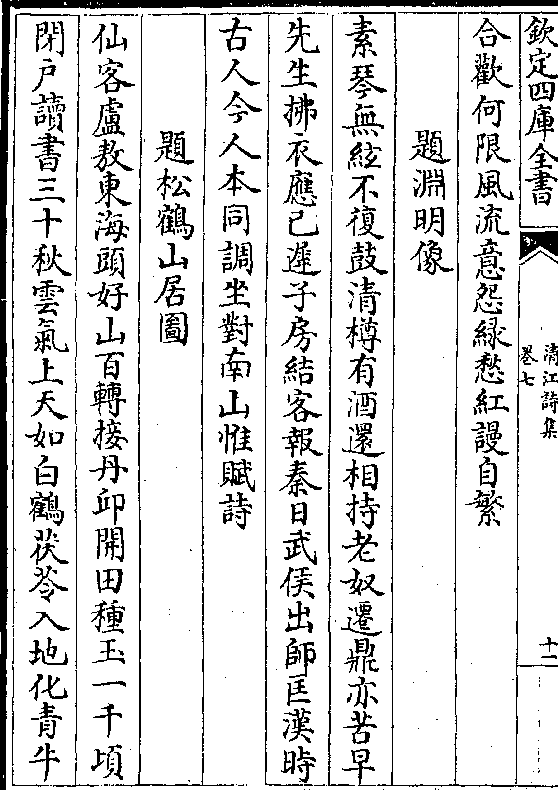 欽定四庫全書
清江詩集
卷七
十一
合歡何限風流意怨緑愁紅謾自繁
題淵明像
素琴無絃不復鼓清樽有酒還相持老奴遷鼎亦苦早
先生拂衣應已遲子房結客報秦日武侯出師匡漢時
古人今人本同調坐對南山惟賦詩
題松鶴山居圖
仙客盧敖東海頭好山百轉接丹邱開田種玉一千頃
閉户讀書三十秋雲氣上天如白鶴茯苓入地化青牛